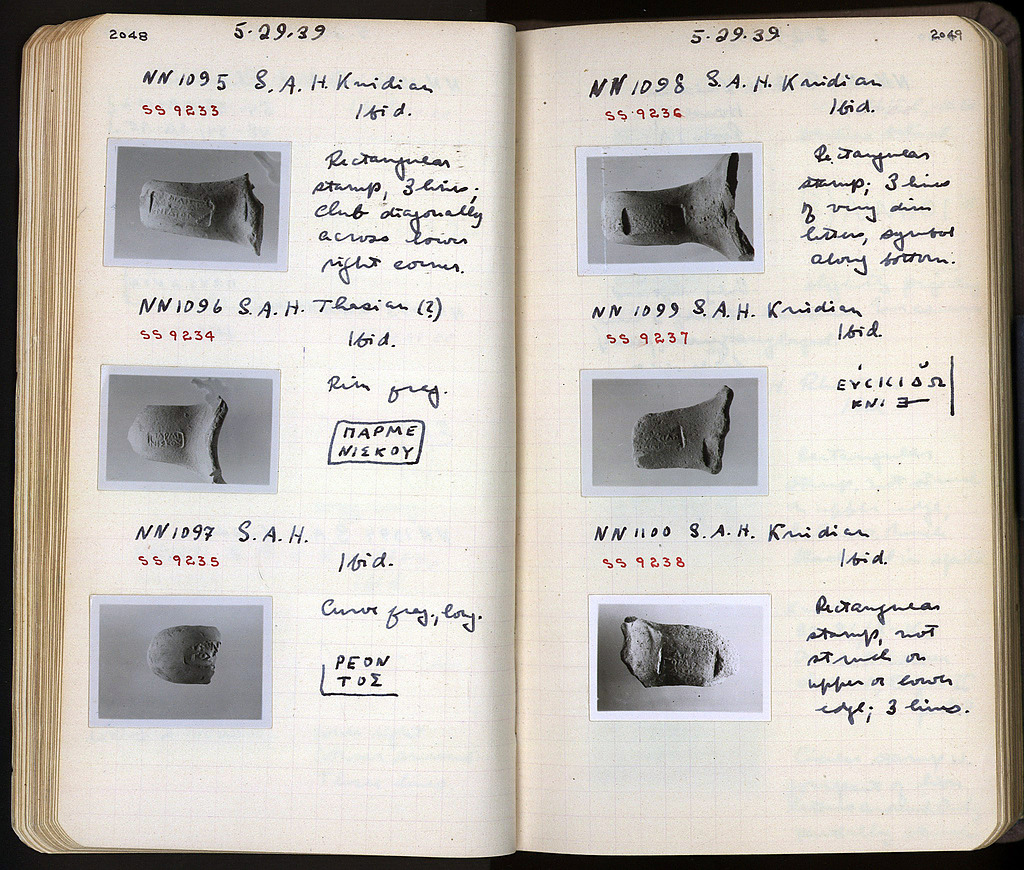 2048
5-29.39
NN1095 S.A.H. Knidian
SS 9233
Ibid.
Rectangular
stamp, 3 lines.
Club diagonally
across lower
right corner.
NN1096 S.A.H. Thasian (?)
SS 9234
Ibid.
Rim frag.
ΠΑΡΜΕ
ΝΙΣΚΟΥ
NN1097 S.A.H.
SS 9235
Ibid.
Curve frag., long.
ΡΕΟΝ
ΤΟΣ
2049
5-29.39
NN1098 S.A.H. Knidian
SS 9236
Ibid.
Rectangular
stamp; 3 lines
of very dim
letters, symbol
along bottom.
NN1099 S.A.H. Knidian
SS 9237
Ibid.
ΚΝΙ
NN1100 S.A.H. Knidian
SS 9238
Ibid.
Rectangular
stamp, not
struck on
upper or lower
edge; 3 lines.